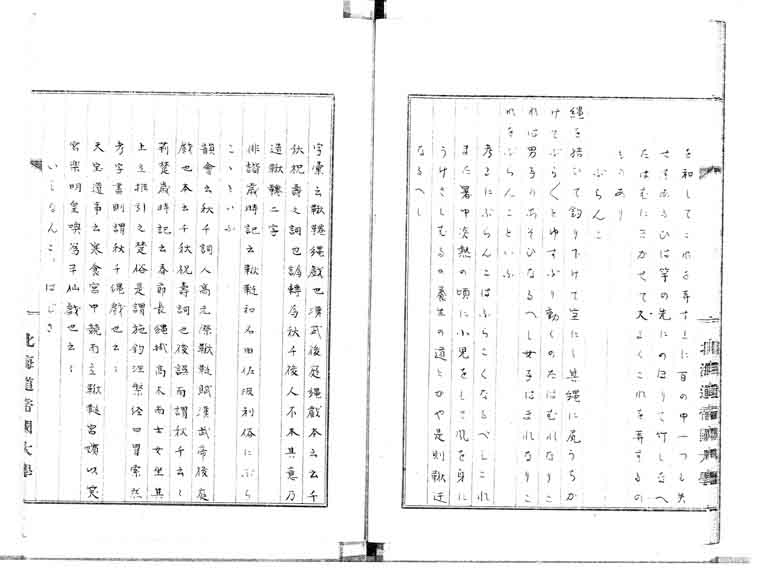 を和してこれを弄す上に百の中一つも失
せすあるひは竿の先にのほりて竹しなへ
たはむにまかせて又よくこれを弄するの
ものあり
ぶらんこ
縄を括りて釣り下けて宝にし其縄に尻うちか
けてぶらぶらとゆすぶり動くのたはむれなりこ
れは男子のあそひなるへし女子はまれなりこ
れをぶらんこといふ
考るにぶらんこはぶらこくなるべしこれ
また暑中炎熱の頃に小児をして風を身に
うけさしむるの養生の道とかや是則鞦迁
なるへし
北海道帝国大学
字彙云鞦韆縄戯也漢武後庭縄戯本云云千
秋祝寿之詞也譌転為秋千後人不本其意乃
造鞦韆二字
俳諧歳時記云鞦韆和名由佐波利俗にぶら
こゝといふ
韻会云秋千詞人高无際鞦韆賦漢武帝後庭
戯也本云千秋祝寿詞也後誤而謂秋千云々
荊楚歳時記云春節長縄掛高木而士女坐其
上立推引之楚俗是謂施鈎涅槃経曰罥索然
考字書則謂秋千縄戯也云々
天宝遺事云寒食宮中競而立鞦韆宮嬪以笑
宮楽明皇喚為半仙戯也云々
いしなんこ、はじき
北海道帝国大学